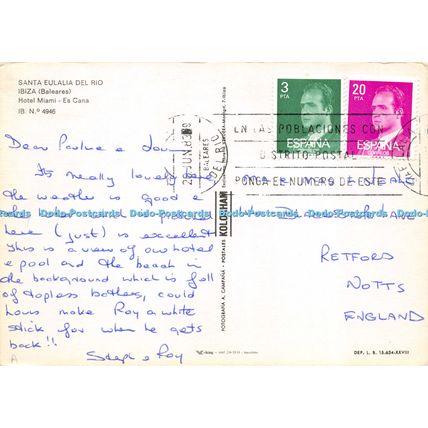 SANTA EULALIA DEL RIO
IBIZA (Baleares)
Hotel Miami - Es Cana
IB. N.º 4946
3
PTA
ESPAÑA
20
PTA
ESPAÑA
CORREOS
BALEARES
EN LAS POBLACIONES CON
DISTRITO POSTAL
PONGA EL NUMERO DE ESTE
Dear Pauline e
Its really lovely here
the weather is good e
here (just) is excellent
This is a view of our hotel
e pool and the beach in
the background which is full
of topless bathers, could
hours make Roy a white
stick for when he gets
back!!
Steph e Roy
FOTOGRAFIA A. CAMPAÑÁ - POSTALES KOLORHAM
RETFORD
NOTTS
ENGLAND
DEP. L. B. 15.654-XXVIII
Dodo-Postcards Dodo-Postcards Dodo-Postcards Dodo-Postcards
A